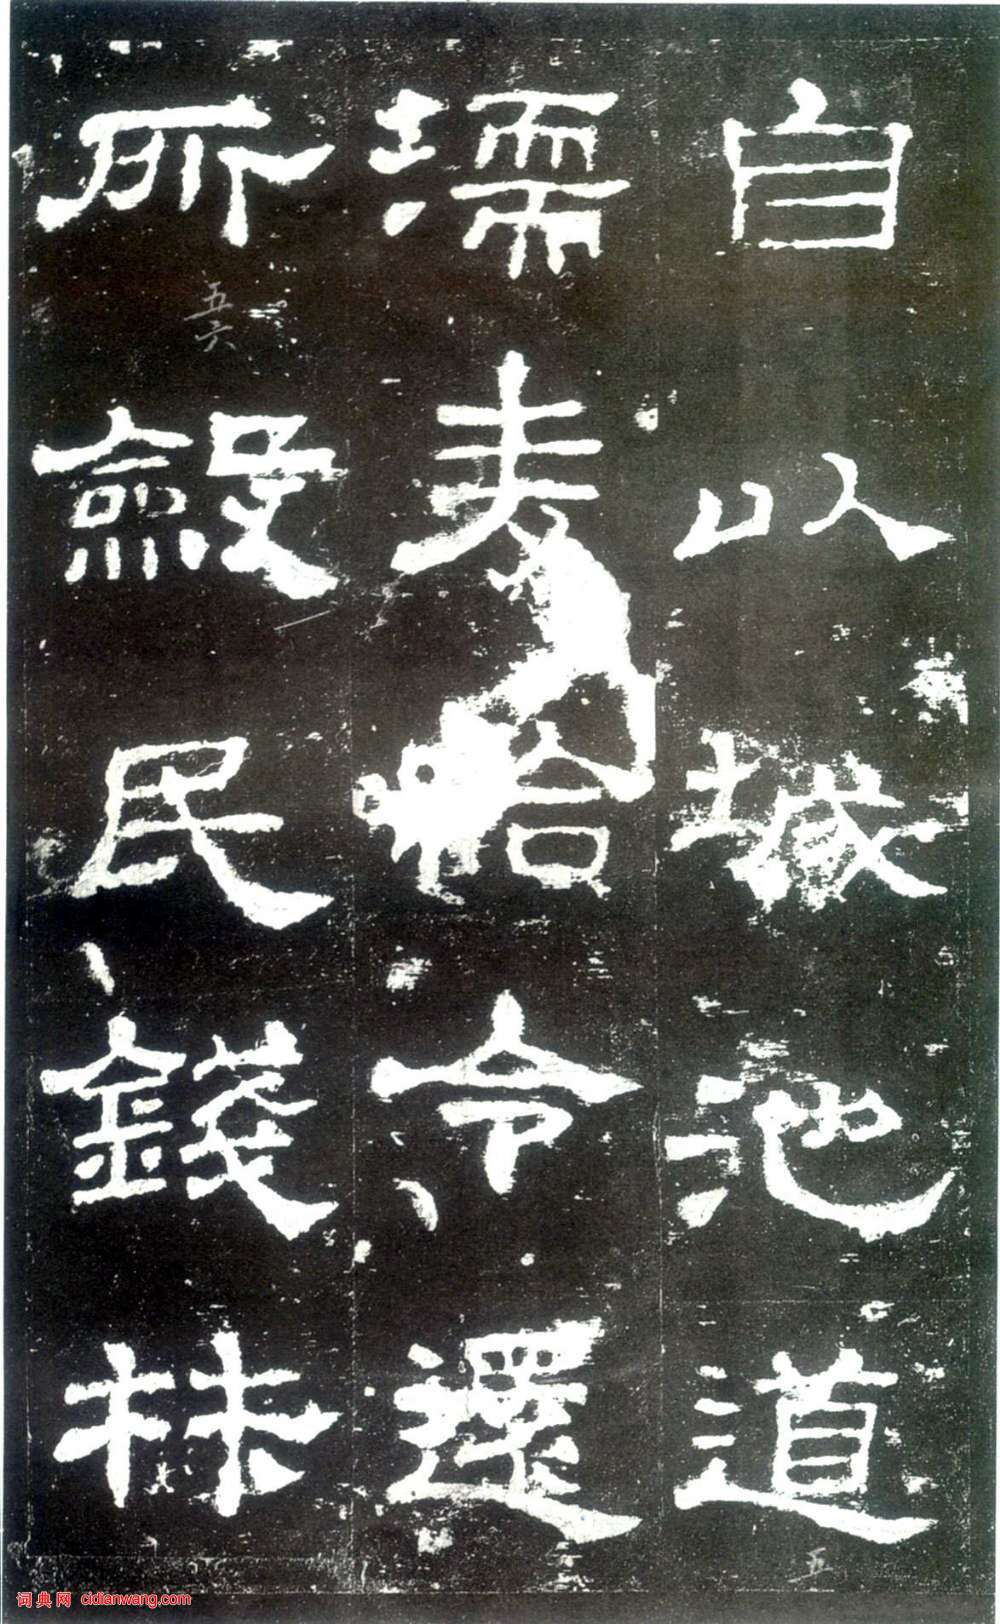 自以城池道
濡麥給令還
所斂民錢材
五六
五
词典网 cidianwang.com